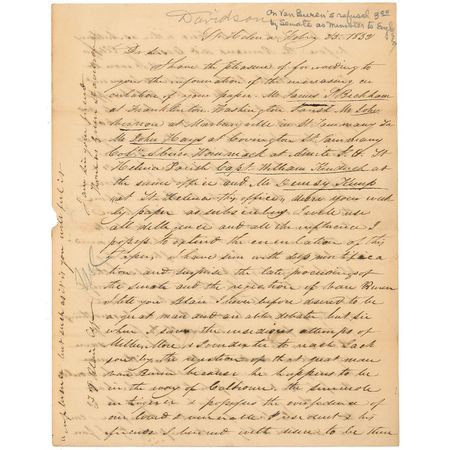 Davidson
On Van Buren's refusal
by Senate as Minister to Eng
St Helena Feby 25. 1832
Dr Sir
I have the pleasure of forwarding to
you the information of the increasing cir
culation of your paper. Mr James P Beckham
at Franklinton Washington Parish Mr John
at in St Tammany La
Mr John Hays at Covington St Tammany
Womack at Amite P. O. St
Helena Parish Capt. William Kindred at
the same office and Mr Dempsy Kemp
at St Helena P office, desire your week
ly paper as subscribers I will use
all diligence and all the influence I
possess to extend the circulation of this
Paper, I have seen with deep mortifica
tion and surprise the late proceedings of
the Senate and the rejection of Van Buren
I tell you Blair I have before desired to be
a great man and an able debater but sir
when I saw the insidious attempts of
to reach Jack
son by the rejection of that great man
Van Buren because he happens to be
in the way of Calhoun, the
& possesses the confidence of
our loved & venerable President & his
friends I burned with desire to be there
I am Sir your friend
F P Blair Esqr
but such as it is you will feel it